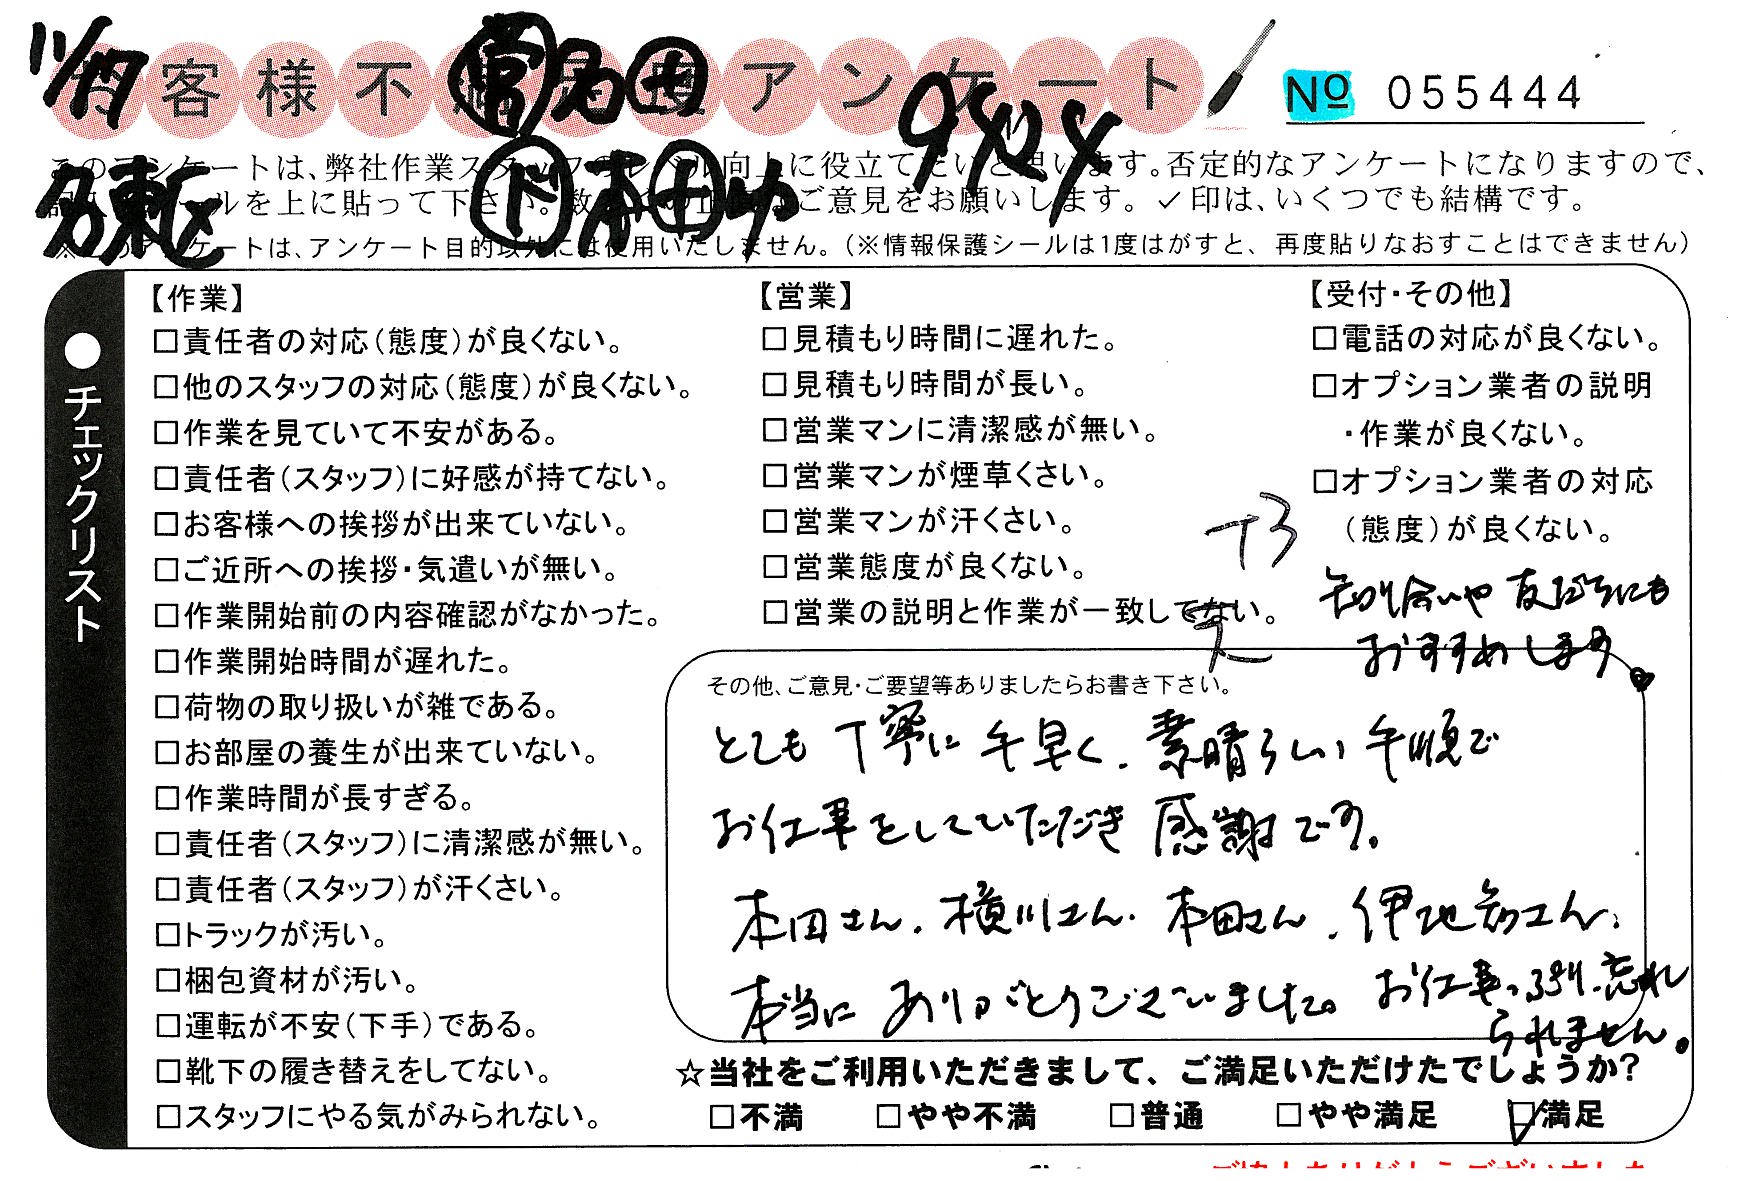 11/17
お客様不満足度アンケート
No 055444
このアンケートは、弊社作業スタッフのレベル向上に役立てたいと思います。否定的なアンケートになりますので、
記入後シールを上に貼って下さい。数 ご意見をお願いします。✓印は、いくつでも結構です。
※このアンケートは、アンケート目的以外には使用いたしません。（※情報保護シールは1度はがすと、再度貼りなおすことはできません）
●チェックリスト
【作業】
□責任者の対応（態度）が良くない。
□他のスタッフの対応（態度）が良くない。
□作業を見ていて不安がある。
□責任者（スタッフ）に好感が持てない。
□お客様への挨拶が出来ていない。
□ご近所への挨拶・気遣いが無い。
□作業開始前の内容確認がなかった。
□作業開始時間が遅れた。
□荷物の取り扱いが雑である。
□お部屋の養生が出来ていない。
□作業時間が長すぎる。
□責任者（スタッフ）に清潔感が無い。
□責任者（スタッフ）が汗くさい。
□トラックが汚い。
□梱包資材が汚い。
□運転が不安（下手）である。
□靴下の履き替えをしてない。
□スタッフにやる気がみられない。
【営業】
□見積もり時間に遅れた。
□見積もり時間が長い。
□営業マンに清潔感が無い。
□営業マンが煙草くさい。
□営業マンが汗くさい。
□営業態度が良くない。
□営業の説明と作業が一致してない。
【受付・その他】
□電話の対応が良くない。
□オプション業者の説明
・作業が良くない。
□オプション業者の対応
（態度）が良くない。
知り合いや友だちにも
おすすめします
その他、ご意見・ご要望等ありましたらお書き下さい。
とても丁寧に手早く、素晴らしい手順で
お仕事をしていただき感謝です。
本田さん、横川さん、本田さん、伊地知さん、
本当にありがとうございました。お仕事っぷり、忘れ
られません。
☆当社をご利用いただきまして、ご満足いただけたでしょうか？
□不満 □やや不満 □普通 □やや満足 ☑満足